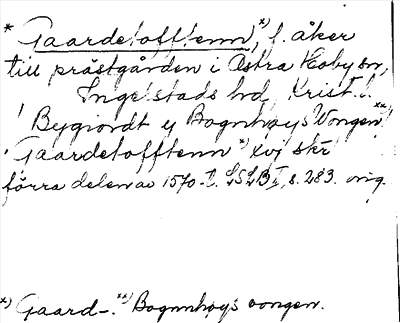 * Gaardetofftenn, *) f. åker
till prästgården i Östra Hoby sn,
Ingelstads hd, Krist. l.
! Bygiordt y Bognhøys Wongen **) !
Gaardetofftenn *) xvj skr
förra delen av 1570-t. LSLB I, s. 283. orig.
*) Gaard-. **) Bognnhøys vongen.